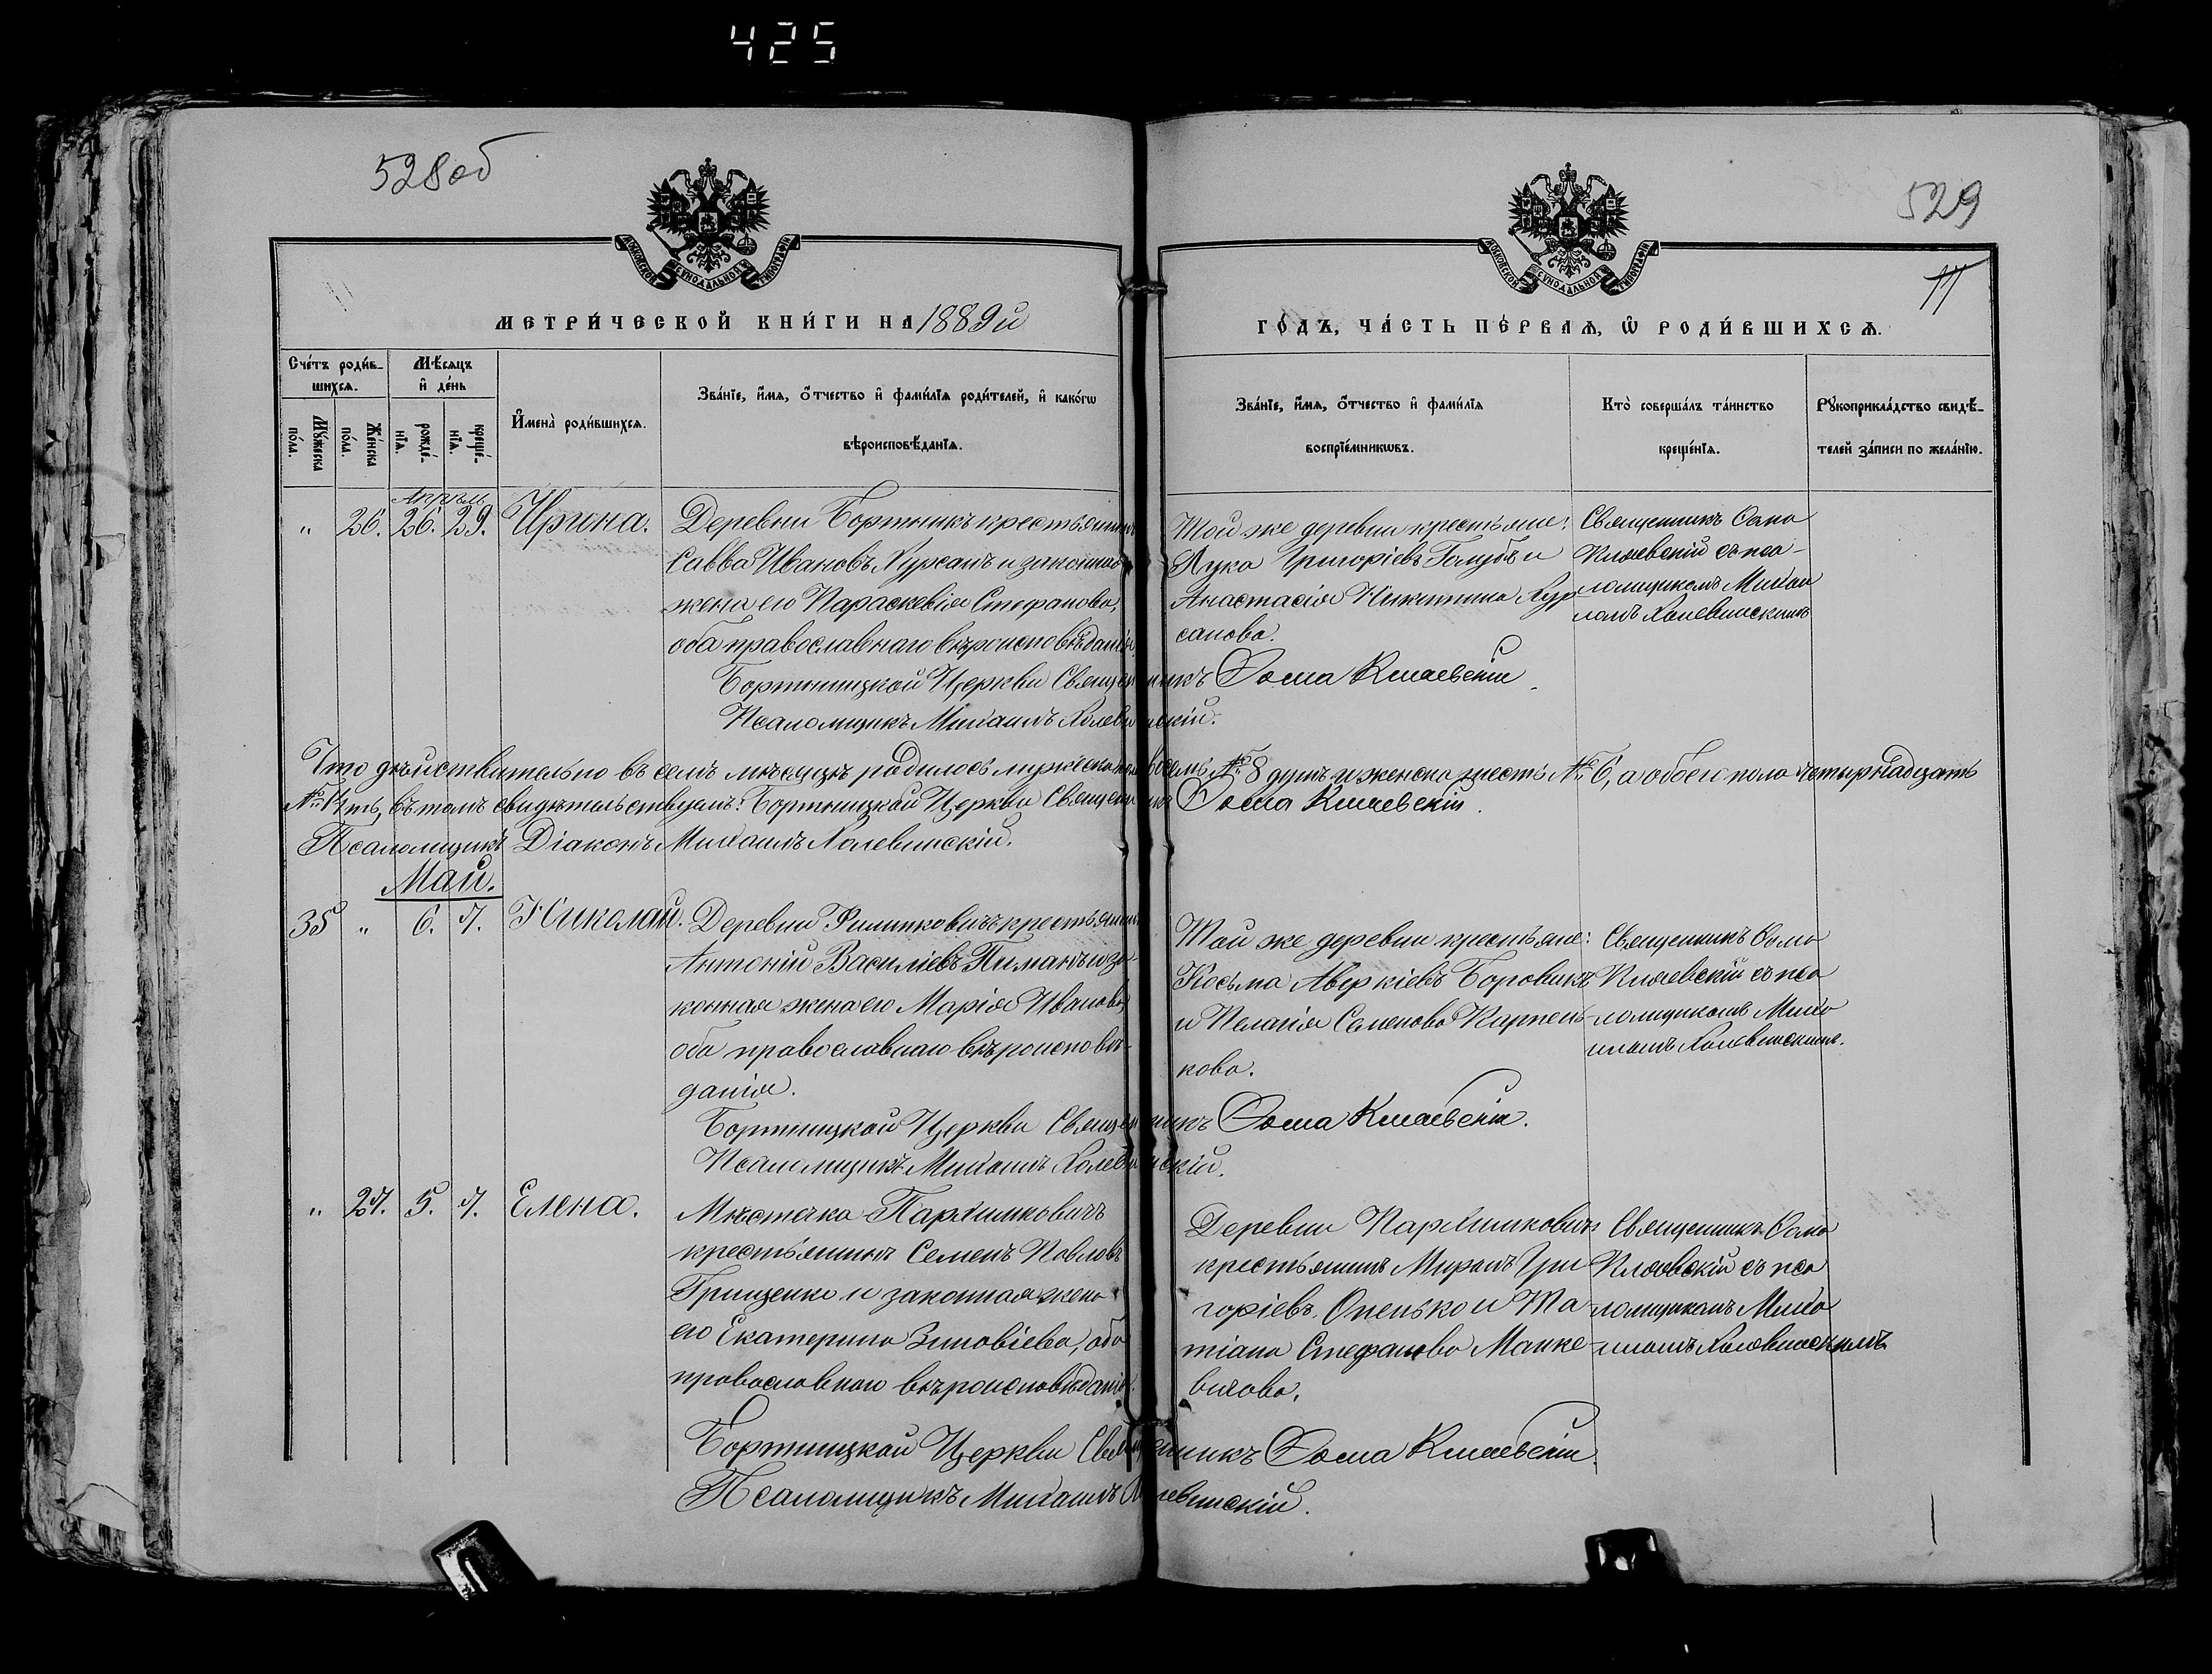 425
528об
529
11
МОСКОВСКОЙ СУНОДАЛЬНОЙ ТИПОГРАФІИ
МОСКОВСКОЙ СУНОДАЛЬНОЙ ТИПОГРАФІИ
МЕТРИ́ЧЕСКОЙ КНИ́ГИ НА 1889й
ГО́ДЪ, ЧА́СТЬ ПЕ́РВАѦ, Ѽ РОДИ́ВШИХСѦ.
Сче́тъ роди́в-
шихсѧ.
Мѣ́сѧцъ
и҆ де́нь
Мꙋ́жеска
по́ла.
Же́нска
по́ла.
рожде́-
нїѧ.
креще́-
нїѧ.
И҆мена̀ роди́вшихсѧ.
Зва́нїе, и҆́мѧ, ѻ҆́тчество и҆ фами́лїѧ роди́телей, и҆ како́гѡ
вѣроисповѣ́данїѧ.
Зва́нїе, и҆́мѧ, ѻ҆́тчество и҆ фами́лїѧ
воспрїе́мникѡвъ.
Кто̀ соверша́лъ та́инство
креще́нїѧ.
Рꙋкоприкла́дство свидѣ́-
телей за́писи по жела́нїю.
Апрѣль
" 26. 26. 29. Ирина.
Деревни Бортникъ крестьянинъ
Савва Ивановъ Хурсанъ и законная
жена его Параскевія Стефанова,
оба православнаго вѣроисповѣданія.
Той же деревни крестьяне:
Лука Григоріевъ Голубъ и
Анастасія Никитина Хур
санова.
Священникъ Ѳома
Кмаевскій съ пса-
ломщикомъ Михаи
ломъ Холевинскимъ
Бортницкой Церкви Священникъ Ѳома Кмаевскій.
Псаломщикъ Михаилъ Холевинскій.
Что дѣйствительно въ семъ мѣсяцѣ родилось мужеска пола восемь № 8 душъ и женска шесть № 6, а обоего пола четырнадцать
№ 14ть, въ томъ свидѣтельствуемъ: Бортницкой Церкви Священникъ Ѳома Кмаевскій.
Псаломщикъ Діаконъ Михаилъ Холевинскій.
Май.
35 " 6. 7. Николай.
Деревни Филипковичъ крестьянинъ
Антоній Василіевъ Пиманъ и за
конная жена его Марія Иванова,
оба православнаго вѣроисповѣ-
данія.
Той же деревни крестьяне:
Косьма Аверкіевъ Боровикъ
и Пелагія Семенова Карпень-
кова.
Священникъ Ѳома
Кмаевскій съ пса
ломщикомъ Миха
иломъ Холевинскимъ.
Бортницкой Церкви Священникъ Ѳома Кмаевскій.
Псаломщикъ Михаилъ Холевинскій.
" 27. 5. 7. Елена.
Мѣстечка Пархимковичъ
крестьянинъ Семенъ Павловъ
Грищенко и законная жена
его Екатерина Зиновіева, оба
православнаго вѣроисповѣданія.
Деревни Пархимковичъ
крестьянинъ Миронъ Гри
горіевъ Опенько и Та
тіана Стефанова Манке-
вичова.
Священникъ Ѳома
Кмаевскій съ пса
ломщикомъ Миха
иломъ Холевинскимъ
Бортницкой Церкви Священникъ Ѳома Кмаевскій.
Псаломщикъ Михаилъ Холевинскій.